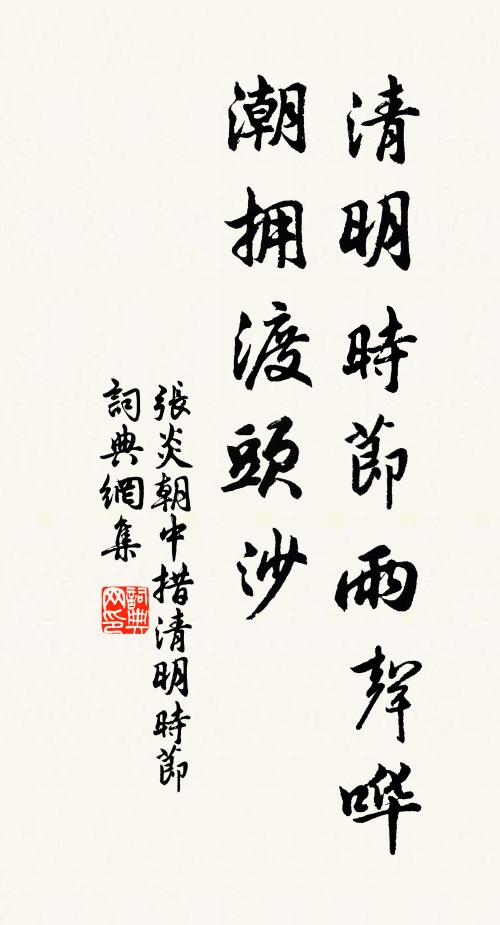 清明時節雨聲哗
潮拥渡頭沙
張炎朝中措清明時節
詞典網集
詞典网印